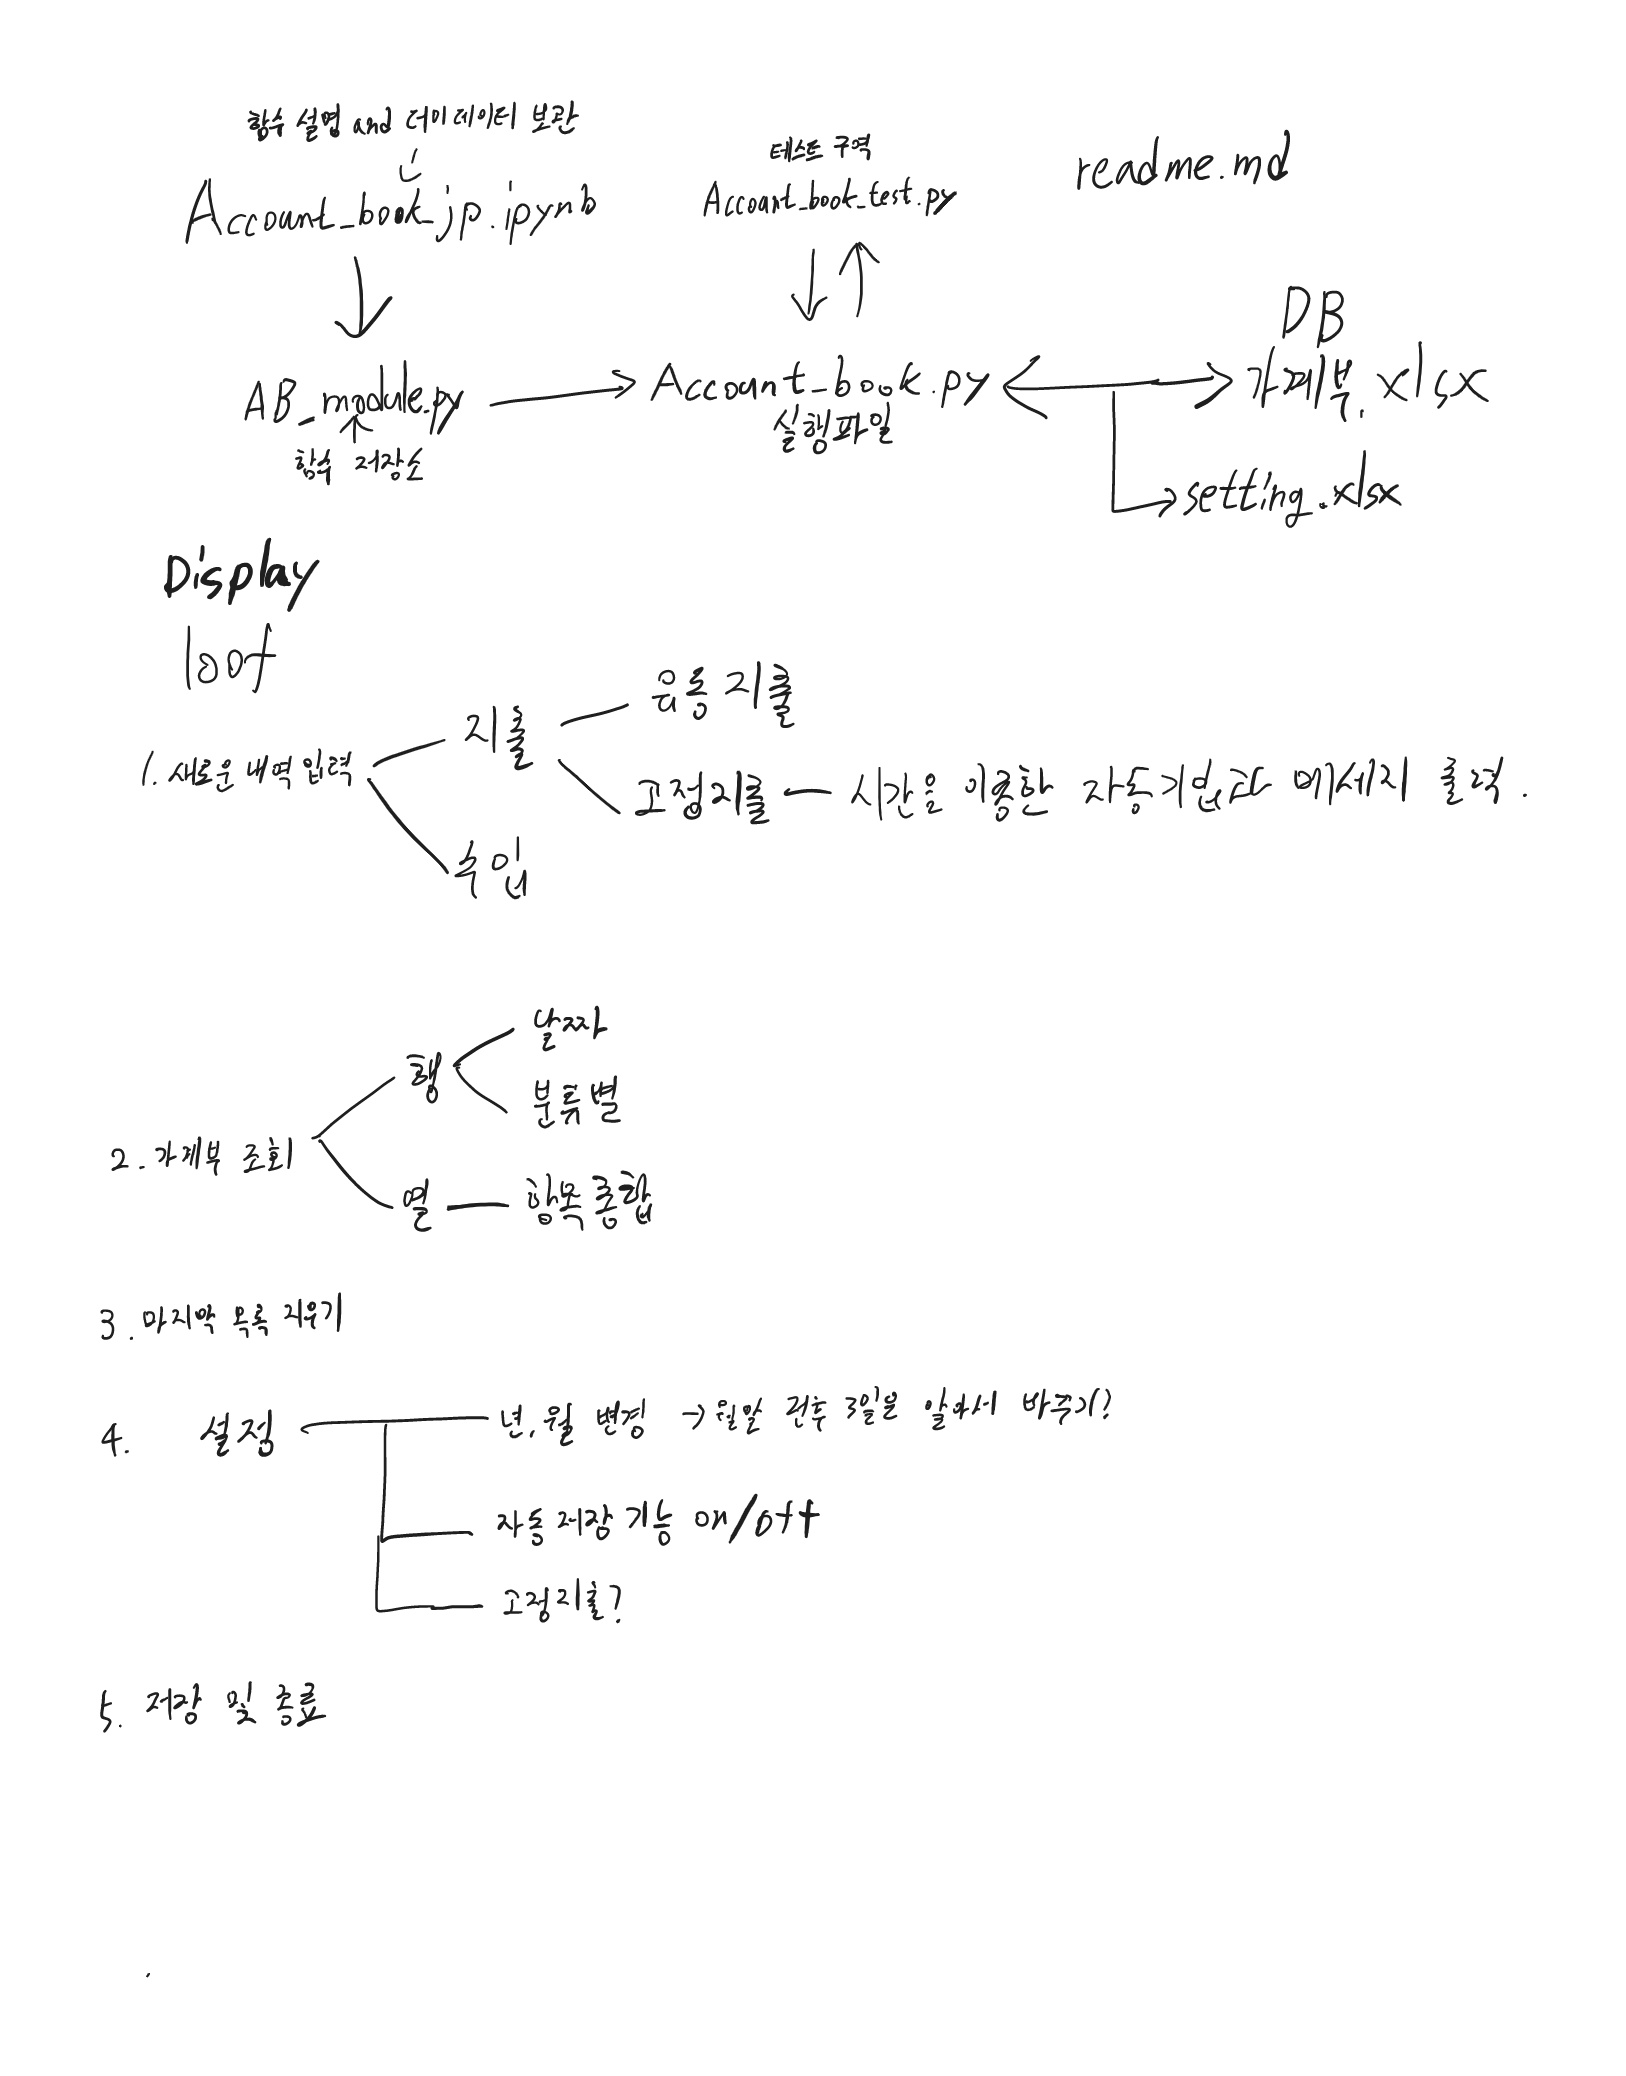 함수 설명 and 더미데이터 보관
Account_book_jp.ipynb
테스트 구역
Account_book_test.py
readme.md
AB_module.py
함수 저장소
Account_book.py
실행파일
DB
가계부.xlsx
setting.xlsx
Display
loof
1. 새로운 내역 입력
지출
유동 지출
고정지출
시간을 이용한 자동기법과 메세지 출력.
수입
2. 가계부 조회
행
날짜
분류별
열
항목종합
3. 마지막 목록 지우기
4. 설정
년, 월 변경 → 월말 전후 3일을 알아서 바꾸기?
자동저장기능 on/off
고정지출?
5. 저장 및 종료